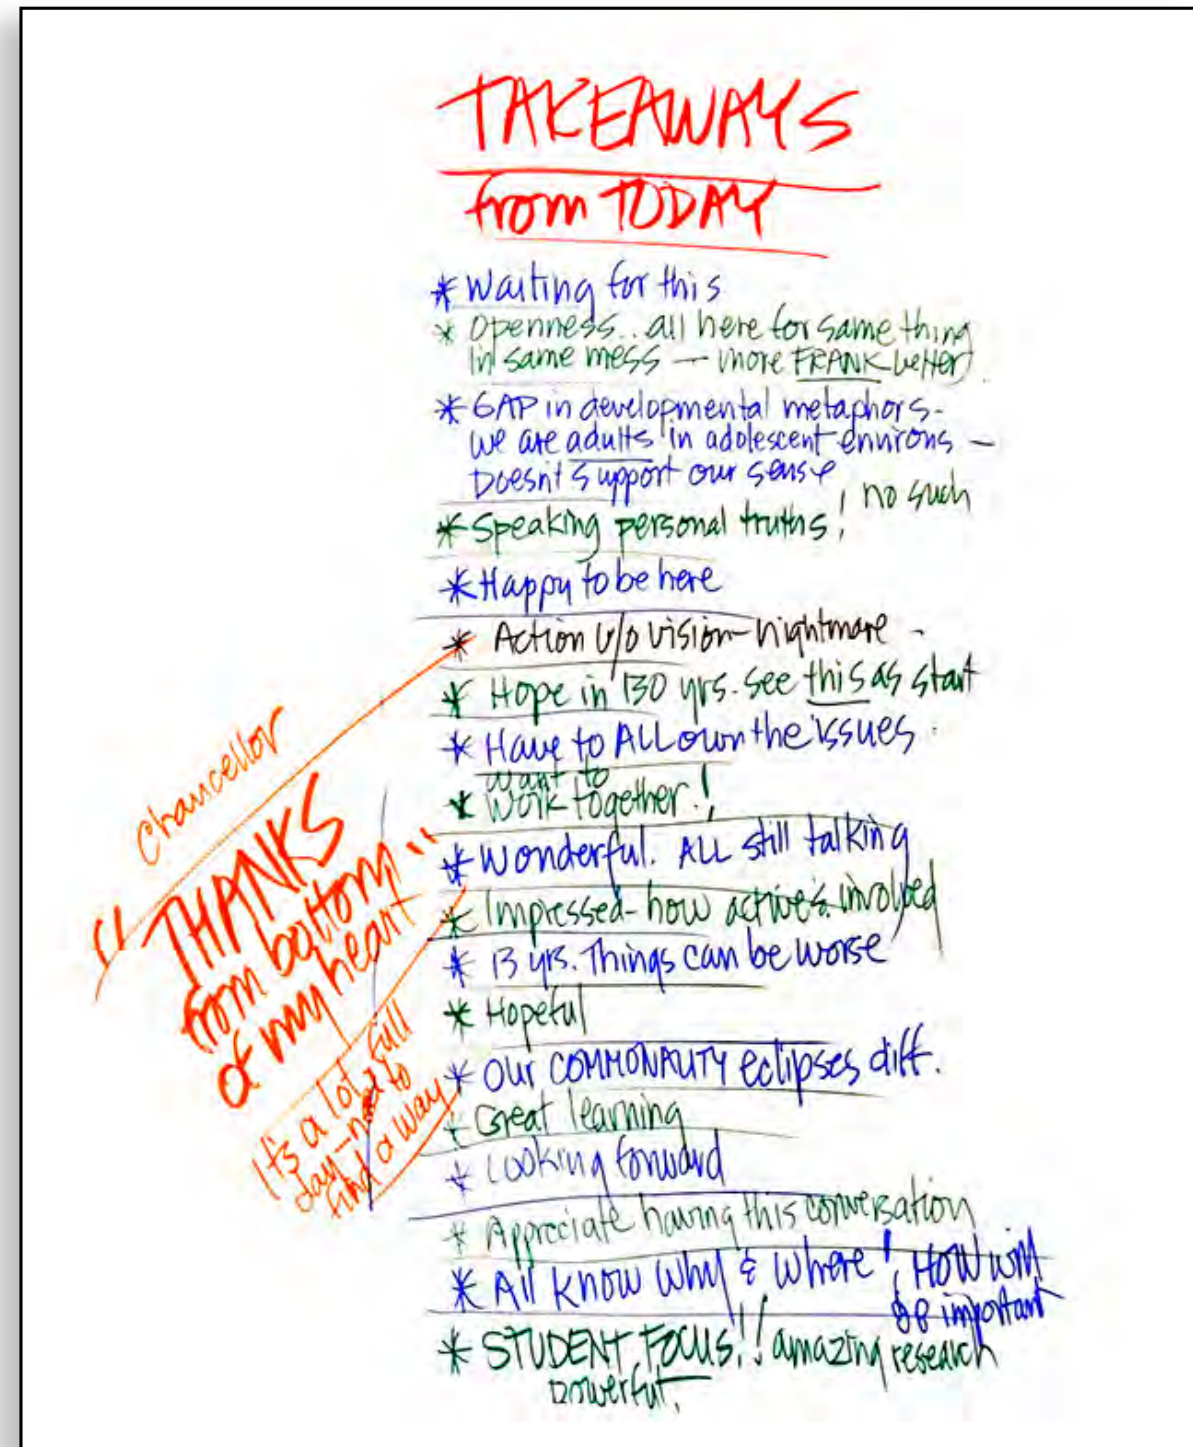 TAKEAWAYS
from TODAY
* Waiting for this
* Openness.. all here for same thing
in same mess — more FRANK better
* GAP in developmental metaphors -
we are adults in adolescent environs —
Doesn't support our sense
* Speaking personal truths! no such
* Happy to be here
* Action w/o vision - nightmare -
* Hope in 130 yrs. see this as start
* Have to ALL own the issues.
want to
* Work together!
* Wonderful. ALL still talking
* Impressed - how active & involved
* 13 yrs. Things can be worse
* Hopeful
* Our COMMONALITY eclipses diff.
* Great learning
* Looking forward
* Appreciate having this conversation
* All know why & where! HOW will
be important
* STUDENT FOCUS!! amazing research
powerful.
Chancellor
"THANKS
from bottom
of my heart"
It's a lot, full
day - need to
find a way